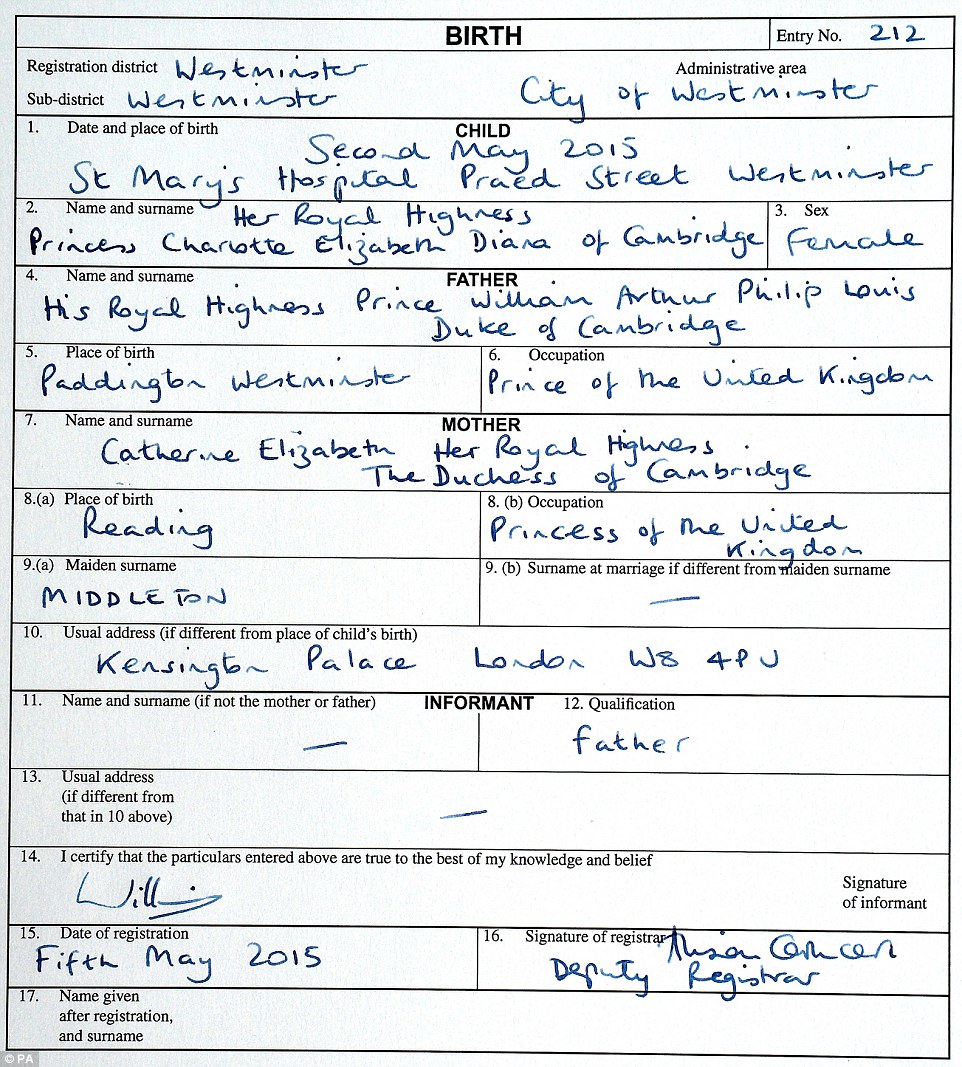 BIRTH
Entry No. 212
Registration district Westminster
Administrative area
Sub-district Westminster
City of Westminster
1. Date and place of birth
CHILD
Second May 2015
St Mary's Hospital Praed Street Westminster
2. Name and surname
Her Royal Highness
Princess Charlotte Elizabeth Diana of Cambridge
3. Sex
Female
4. Name and surname
FATHER
His Royal Highness Prince William Arthur Philip Louis
Duke of Cambridge
5. Place of birth
Paddington Westminster
6. Occupation
Prince of the United Kingdom
7. Name and surname
MOTHER
Catherine Elizabeth Her Royal Highness
The Duchess of Cambridge
8.(a) Place of birth
Reading
8. (b) Occupation
Princess of the United
Kingdom
9.(a) Maiden surname
MIDDLETON
9. (b) Surname at marriage if different from maiden surname
—
10. Usual address (if different from place of child's birth)
Kensington Palace London W8 4PU
11. Name and surname (if not the mother or father)
INFORMANT
—
12. Qualification
Father
13. Usual address
(if different from
that in 10 above)
—
14. I certify that the particulars entered above are true to the best of my knowledge and belief
Signature
of informant
15. Date of registration
Fifth May 2015
16. Signature of registrar
Deputy Registrar
17. Name given
after registration,
and surname
© PA